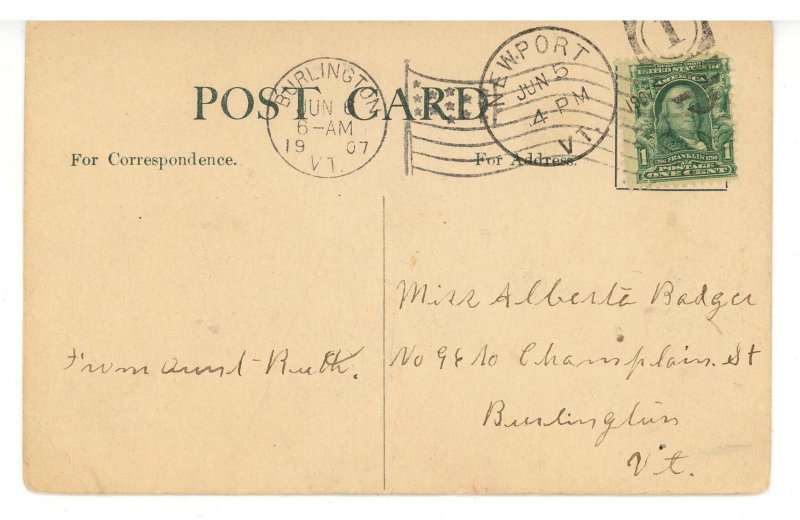 POST CARD
BURLINGTON
JUN 6
6-AM
19 07
VT.
NEWPORT
JUN 5
4-PM
VT.
190
1
UNITED STATES OF
AMERICA
1 FRANKLIN 1
POSTAGE
ONE CENT
For Correspondence.
For Address.
From Aunt Ruth.
Miss Alberta Badger
No Champlain. St
Burlington
Vt.